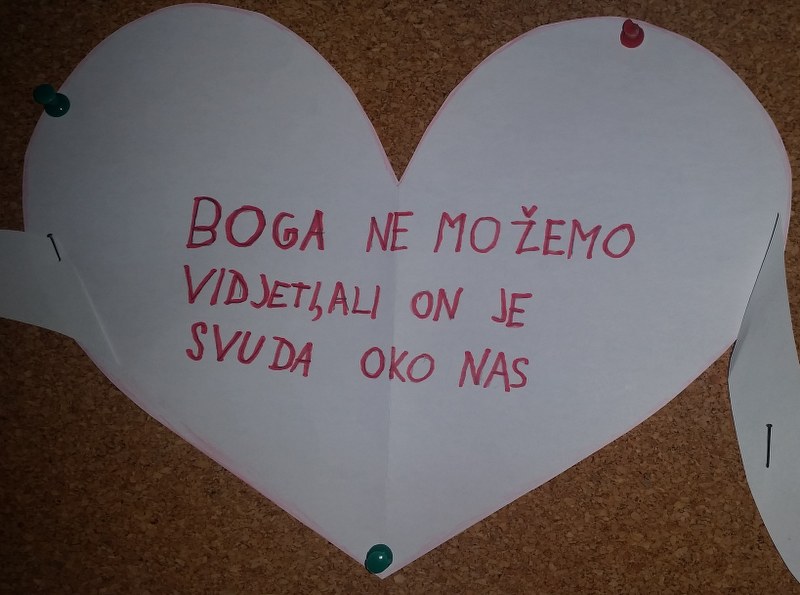 BOGA NE MOŽEMO
VIDJETI, ALI ON JE
SVUDA OKO NAS